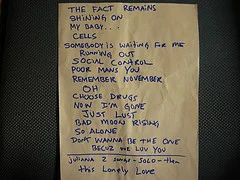 THE FACT REMAINS
SHINING ON
MY BABY...
CELLS
SOMEBODY IS WAITING FOR ME
RUNNING OUT
SOCIAL CONTROL
POOR MANS YOU
REMEMBER NOVEMBER
OH
CHOOSE DRUGS
NOW I'M GONE
JUST LUST
BAD MOON RISING
SO ALONE
DONT WANNA BE THE ONE
BECUZ WE LUV YOU
JULIANA 2 songs - SOLO - then
this Lonely Love